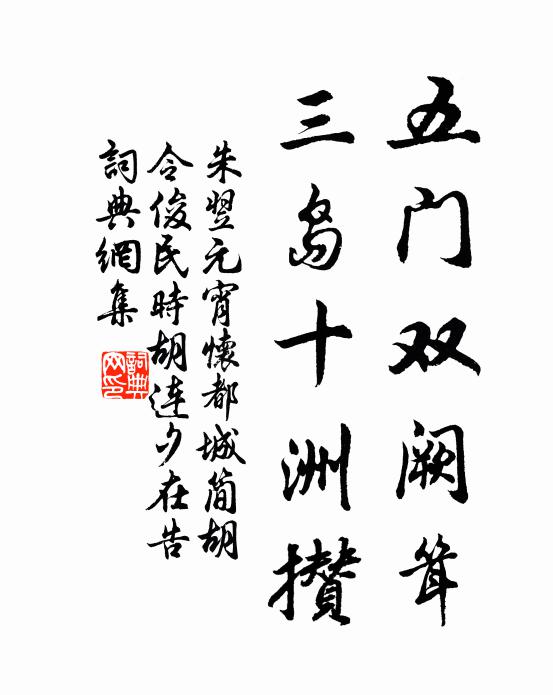 五门双阙耸
三岛十洲攒
朱翌元宵懷都城简胡
令俊民時胡连夕在告
詞典網集
詞典网印